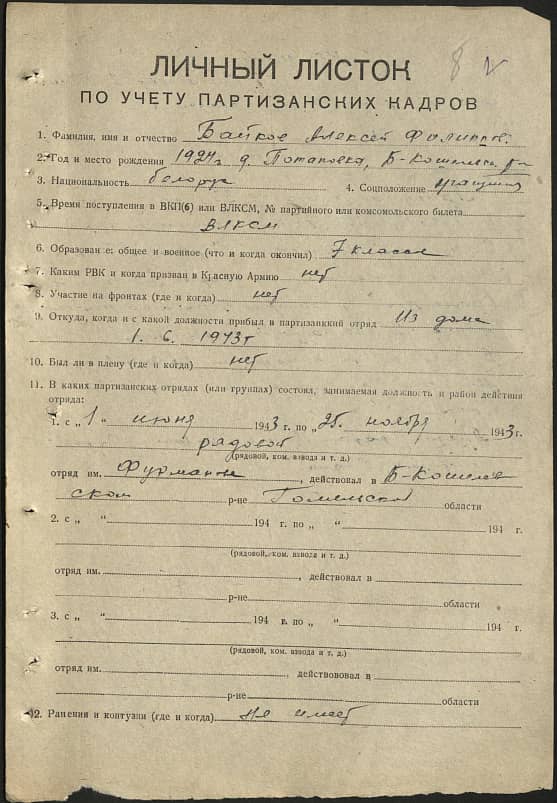 8
ЛИЧНЫЙ ЛИСТОК
ПО УЧЕТУ ПАРТИЗАНСКИХ КАДРОВ
1. Фамилия, имя и отчество Байков Алексей Филипп.
2. Год и место рождения 1924 г д. Потаповка, Б-Кошелевск. р-н
3. Национальность белорус 4. Соцположение учащийся
5. Время поступления в ВКП(б) или ВЛКСМ, № партийного или комсомольского билета
ВЛКСМ
6. Образован е: общее и военное (что и когда окончил) 7 классов
7. Каким РВК и когда призван в Красную Армию нет
8. Участие на фронтах (где и когда) нет
9. Откуда, когда и с какой должности прибыл в партизанкий отряд Из дома
1. 6. 1943 г
10. Был ли в плену (где и когда) нет
11. В каких партизанских отрядах (или группах) состоял, занимаемая должность и район действия
отряда:
1. с „ 1 “ июня 1943 г. по „ 25 “ ноября 1943 г.
рядовой
(рядовой, ком. взвода и т. д.)
отряд им. Фурманова, действовал в Б-Кошелев
ском р-не Гомельской области
2. с „ “ 194 г. по „ “ 194 г.
(рядовой, ком. взвода и т. д.)
отряд им. , действовал в
р-не области
3. с „ “ 194 г. по „ “ 194 г.
(рядовой, ком. взвода и т. д.)
отряд им. , действововал в
р-не области
12. Ранения и контузии (где и когда) не имеет